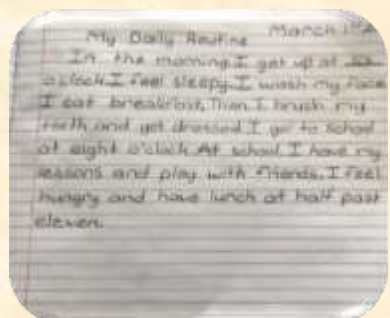 My Daily Routine March 1st
In the morning I get up at
o'clock. I feel sleepy. I wash my face
I eat breakfast. Then I brush my
teeth and get dressed. I go to school
at eight o'clock. At school I have my
lessons and play with friends. I feel
hungry and have lunch at half past
eleven.